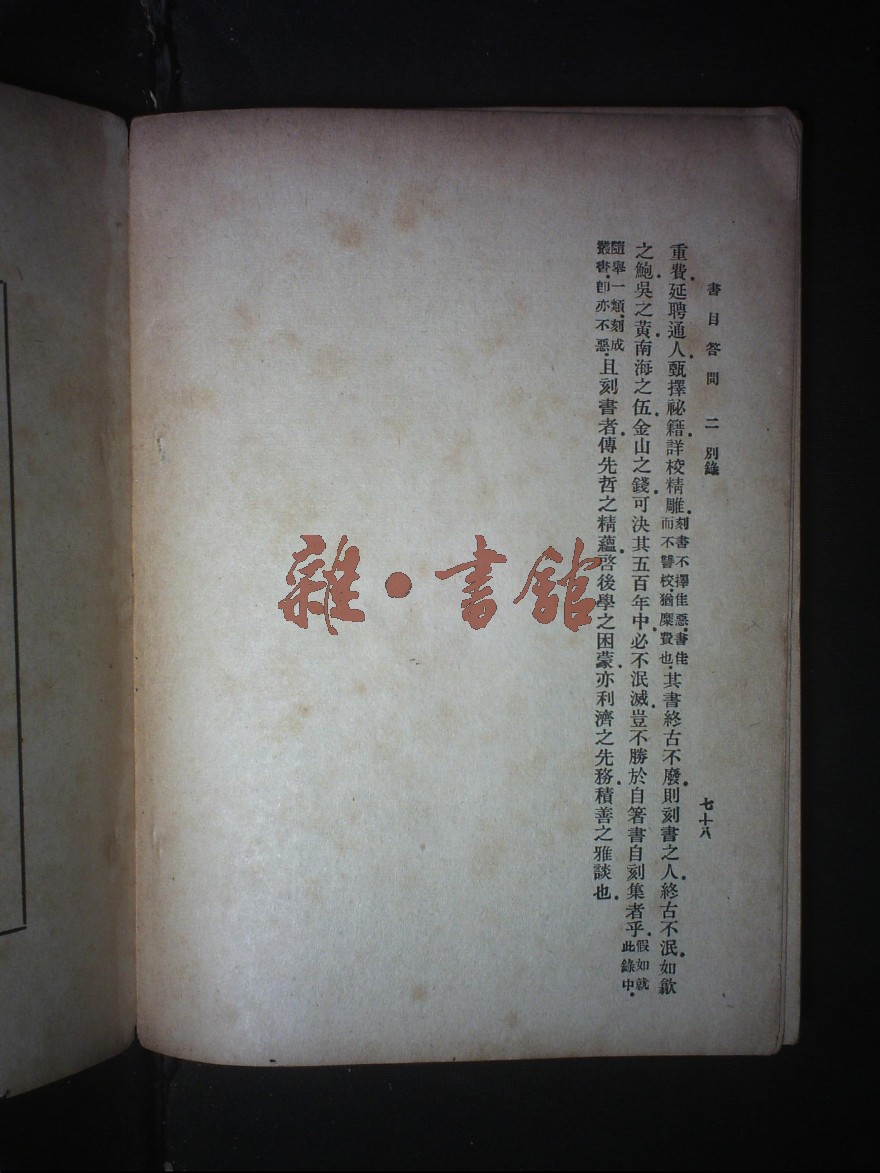 書目答問 二 別錄
七十八
重費延聘通人甄擇祕籍詳校精雕刻書不擇佳惡書佳而不讐校猶糜費也其書終古不廢則刻書之人終古不泯如歙
之鮑吳之黃南海之伍金山之錢可決其五百年中必不泯滅豈不勝於自箸書自刻集者乎假如就此錄中
隨舉一類刻成叢書卽亦不惡且刻書者傳先哲之精蘊啓後學之困蒙亦利濟之先務積善之雅談也
雜·書館